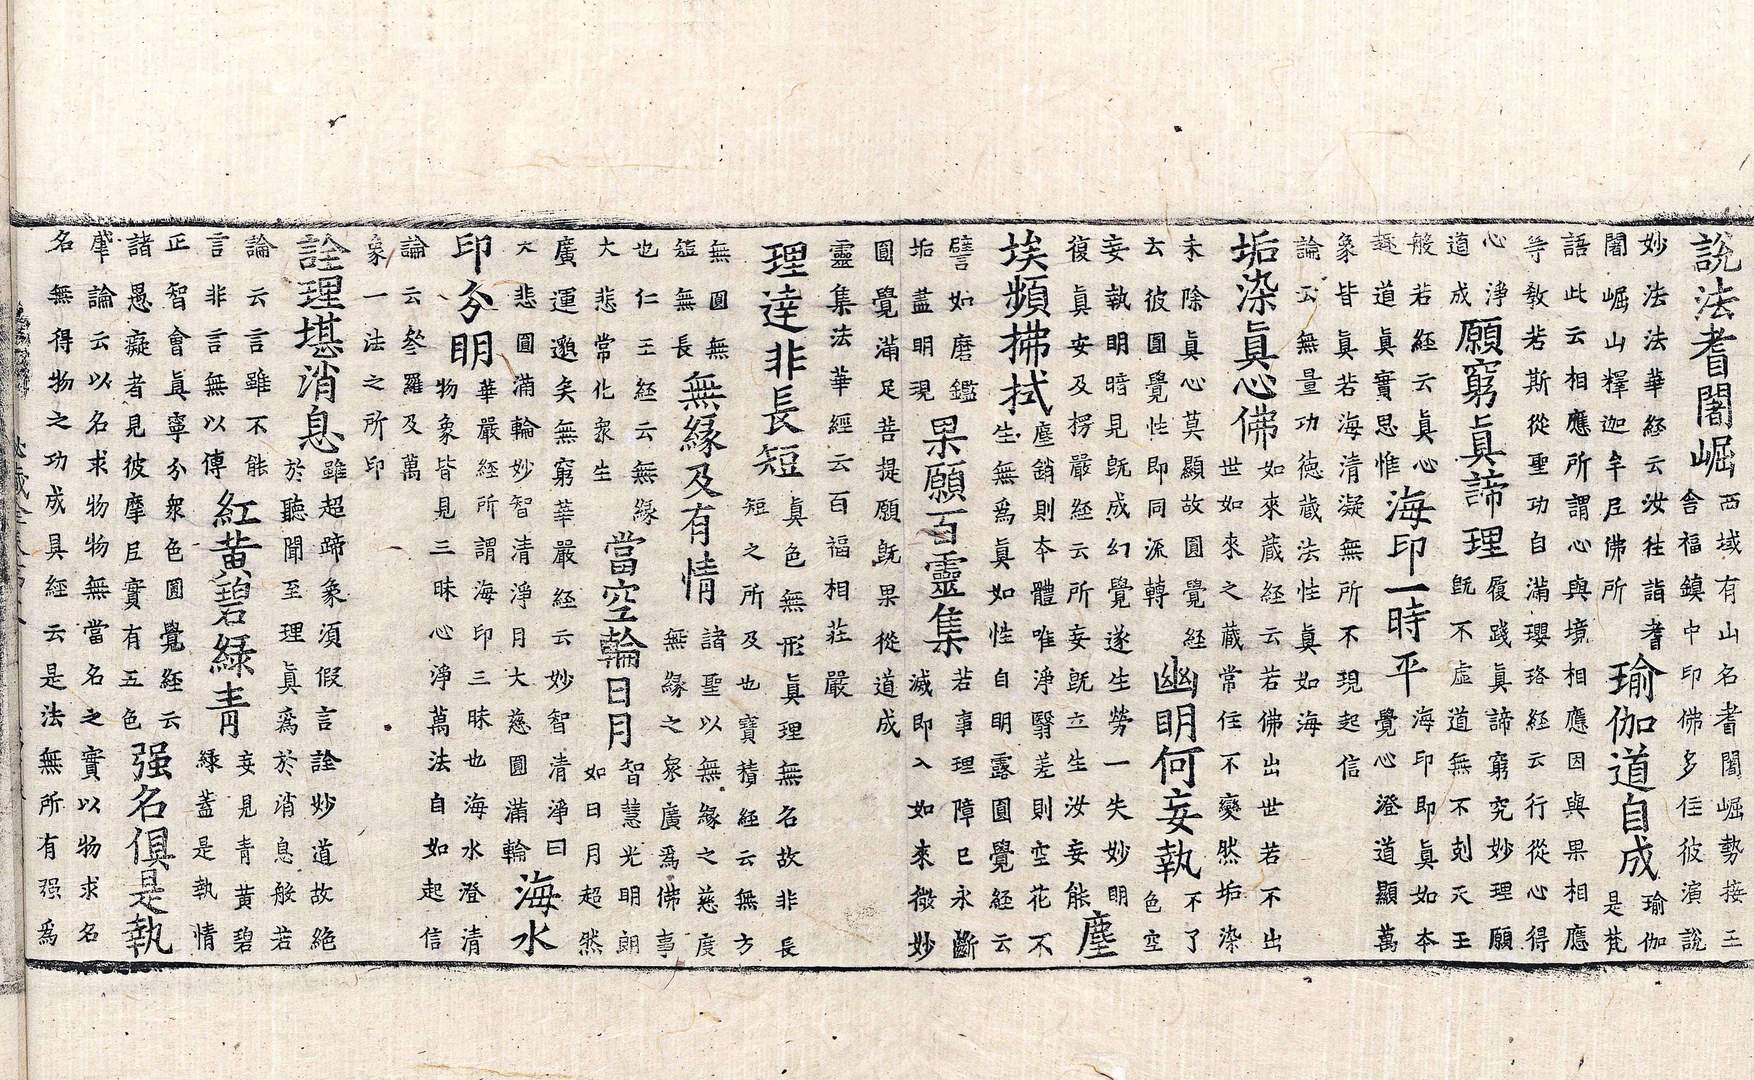 說法耆闍崛
西域有山名耆闍崛勢接王
舍福鎮中印佛多住彼演說
妙法法華経云汝徃詣耆
闍崛山釋迦牟尼佛所
瑜伽道自成
瑜伽
是梵
語此云相應所謂心與境相應因與果相應
等教若斯從聖功自滿瓔珞経云行從心得
心淨
道成
願窮眞諦理
履踐眞諦窮究妙理願
旣不虛道無不剋天王
般若経云眞心
趣道眞實思惟
海印一時平
海印即眞如本
覺心澄道顯萬
象皆眞若海清凝無所不現起信
論云無量功徳蔵法性眞如海
垢染眞心佛
如來蔵経云若佛出世若不出
世如來之蔵常住不變然垢染
未除眞心莫顯故圓覺経
玄彼圓覺性即同流轉
幽明何妄執
不了
色空
妄執明暗見旣成幻覺遂生勞一失妙明
復眞安及楞嚴経云所妄旣立生汝妄能
塵
埃頻拂拭
塵銷則夲體唯淨翳差則空花不
生無爲眞如性自明露圓覺経云
譬如磨鑑
垢盡明現
果願百靈集
若事理障已永斷
滅即入如來微妙
圓覺滿足菩提願旣果從道成
靈集法華経云百福相莊嚴
理達非長短
眞色無形眞理無名故非長
短之所及也寶積経云無方
無圓無
短無長
無緣及有情
諸聖以無緣之慈度
無緣之衆廣爲佛事
也仁王経云無緣
大悲常化衆生
當空輪日月
智慧光明朗
如日月超然
廣運邈矣無窮華嚴経云妙智清淨日
大悲圓滿輪妙智清淨月大慈圓滿輪
海水
印分明
華嚴経所謂海印三昧也海水澄清
物象皆見三昧心淨萬法自如起信
論云叅羅及萬
象一法之所印
詮理堪消息
雖超蹄象須假言詮妙道故絶
於聽聞至理眞爲於消息般若
論云言雖不能
言非言無以傳
紅黃碧緑青
妄見青黃碧
緑蓋是執情
正智會眞寧分衆色圓覺経云
諸愚癡者見彼摩尼實有五色
强名俱是執
肇論云以名求物物無當名之實以物求名
名無得物之功成具経云是法無所有强爲